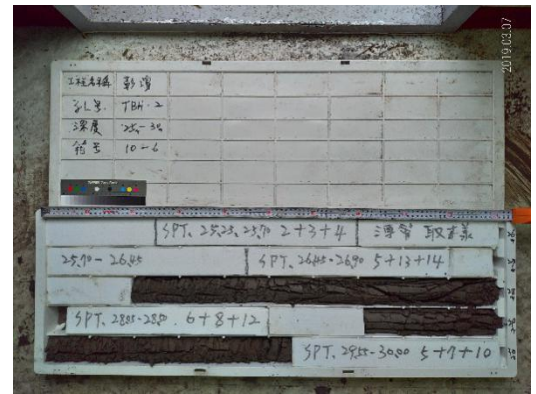 2019.03.07
工程名稱 彰濱
孔號 TBH-2
深度 25-30
箱号 10-6
SPT、25.25-25.70 2+3+4 薄管取樣
25.70-26.45 SPT、26.45-26.90 5+13+14
SPT、28.05-28.50 6+8+12
SPT、29.55-30.00 5+7+10